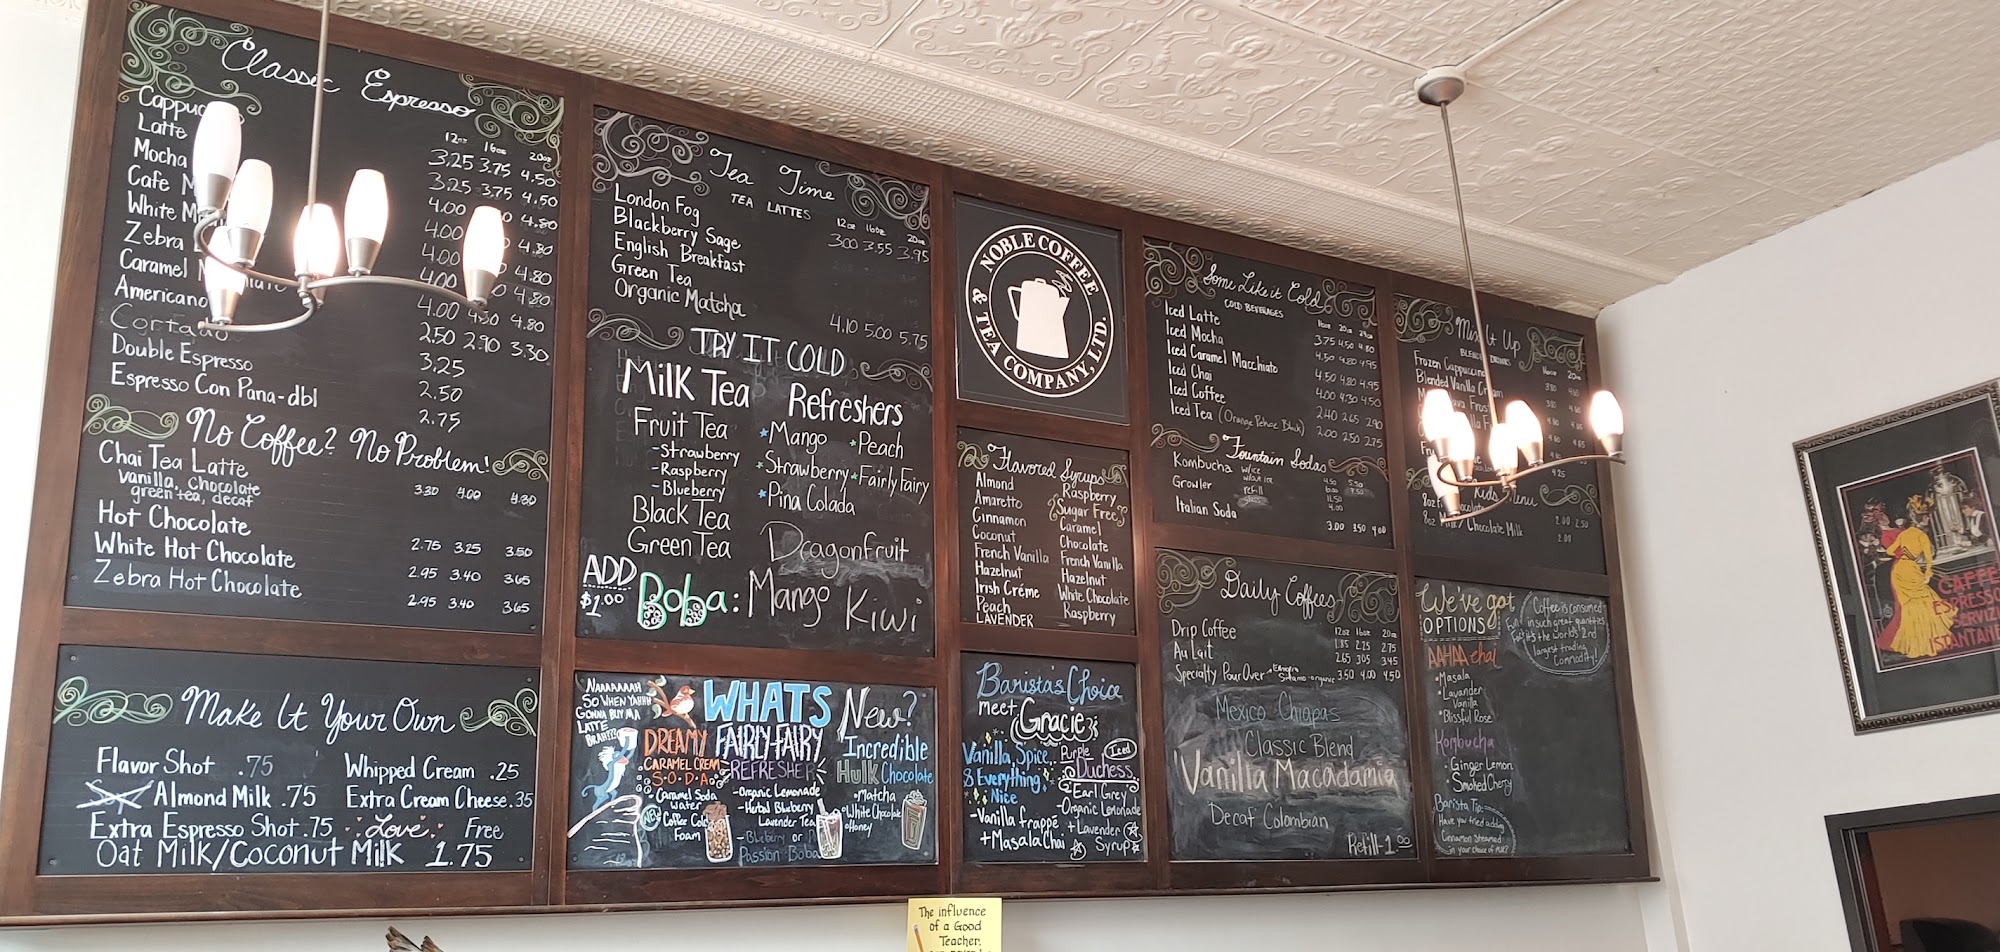 Classic Espresso
12oz 16oz 20oz
3.25 3.75 4.50
Latte 3.25 3.75 4.50
Mocha 4.00 4.80
Cafe 4.00 4.80
White 4.00 4.80
Zebra 4.00 4.80
Caramel 4.00 4.80
Americano 2.50 2.90 3.30
Cortado 3.25
Double Espresso 2.50
Espresso Con Pana-dbl 2.75
No Coffee? No Problem!
Chai Tea Latte 3.30 4.00 4.30
Vanilla, Chocolate
green tea, decaf
Hot Chocolate 2.75 3.25 3.50
White Hot Chocolate 2.95 3.40 3.65
Zebra Hot Chocolate 2.95 3.40 3.65
Make It Your Own
Flavor Shot .75
Whipped Cream .25
Almond Milk .75
Extra Cream Cheese .35
Extra Espresso Shot .75
Love Free
Oat Milk/Coconut Milk 1.75
Tea Time
TEA LATTES
12oz 16oz 20oz
London Fog 3.00 3.55 3.95
Blackberry Sage
English Breakfast
Green Tea
Organic Matcha 4.10 5.00 5.75
TRY IT COLD
Milk Tea
Fruit Tea
-Strawberry
-Raspberry
-Blueberry
Black Tea
Green Tea
Refreshers
Mango
Peach
Strawberry
Fairly Fairy
Pina Colada
Dragonfruit
ADD
$1.00
Boba: Mango Kiwi
NAAAAAAAH
SO WHEN YAHHH
GONNA BUY MA
LATTE
BRAH???
WHATS New?
DREAMY
CARAMEL CREAM
S.O.D.A
Caramel Soda
Water
Coffee Cold
Foam
NEW
FAIRLY-FAIRY
REFRESHER
-Organic Lemonade
-Herbal Blueberry
Lavender Tea
-Blueberry or
Passion Boba
Incredible
Hulk Chocolate
Matcha
White Chocolate
Honey
NOBLE COFFEE
& TEA COMPANY, LTD.
Flavored Syrups
Almond
Amaretto
Cinnamon
Coconut
French Vanilla
Hazelnut
Irish Créme
Peach
LAVENDER
Raspberry
Sugar Free
Caramel
Chocolate
French Vanilla
Hazelnut
White Chocolate
Raspberry
Barista's Choice
meet
Gracie
Vanilla, Spice,
& Everything
Nice
-Vanilla frappé
+Masala Chai
Iced
Purple
Duchess
-Earl Grey
-Organic Lemonade
+Lavender
Syrup
Some Like it Cold
COLD BEVERAGES
16oz 20oz 24oz
Iced Latte 3.75 4.50 4.80
Iced Mocha 4.50 4.80 4.95
Iced Caramel Macchiato 4.50 4.80 4.95
Iced Chai 4.00 4.30 4.50
Iced Coffee 2.40 2.65 2.90
Iced Tea (Orange Pekoe Black) 2.00 2.50 2.75
Fountain Sodas
Kombucha w/ice
Growler
refill
Italian Soda 3.00 3.50 4.00
Daily Coffees
12oz 16oz 20oz
Drip Coffee 1.85 2.25 2.75
Au Lait 2.65 3.05 3.45
Specialty Pour Over 3.50 4.00 4.50
Mexico Chiapas
Classic Blend
Vanilla Macadamia
Decaf Colombian
Refill-1.00
Mix It Up
Frozen Cappuccino
Blended Vanilla
Kids Menu
/Chocolate Milk
We've got
OPTIONS
AAHAA chai
Masala
Lavender
Vanilla
Blissful Rose
Kombucha
Ginger Lemon
Smoked Cherry
Barista Tip:
Have you tried adding
Cinnamon steamed
in your choice of MILK?
Fun Fact
Coffee is consumed
in such great quantities
it's the world's 2nd
largest trading
Commodity!
CAFFE
ESPRESSO
SERVIZIO
ISTANTANEO
The influence
of a Good
Teacher